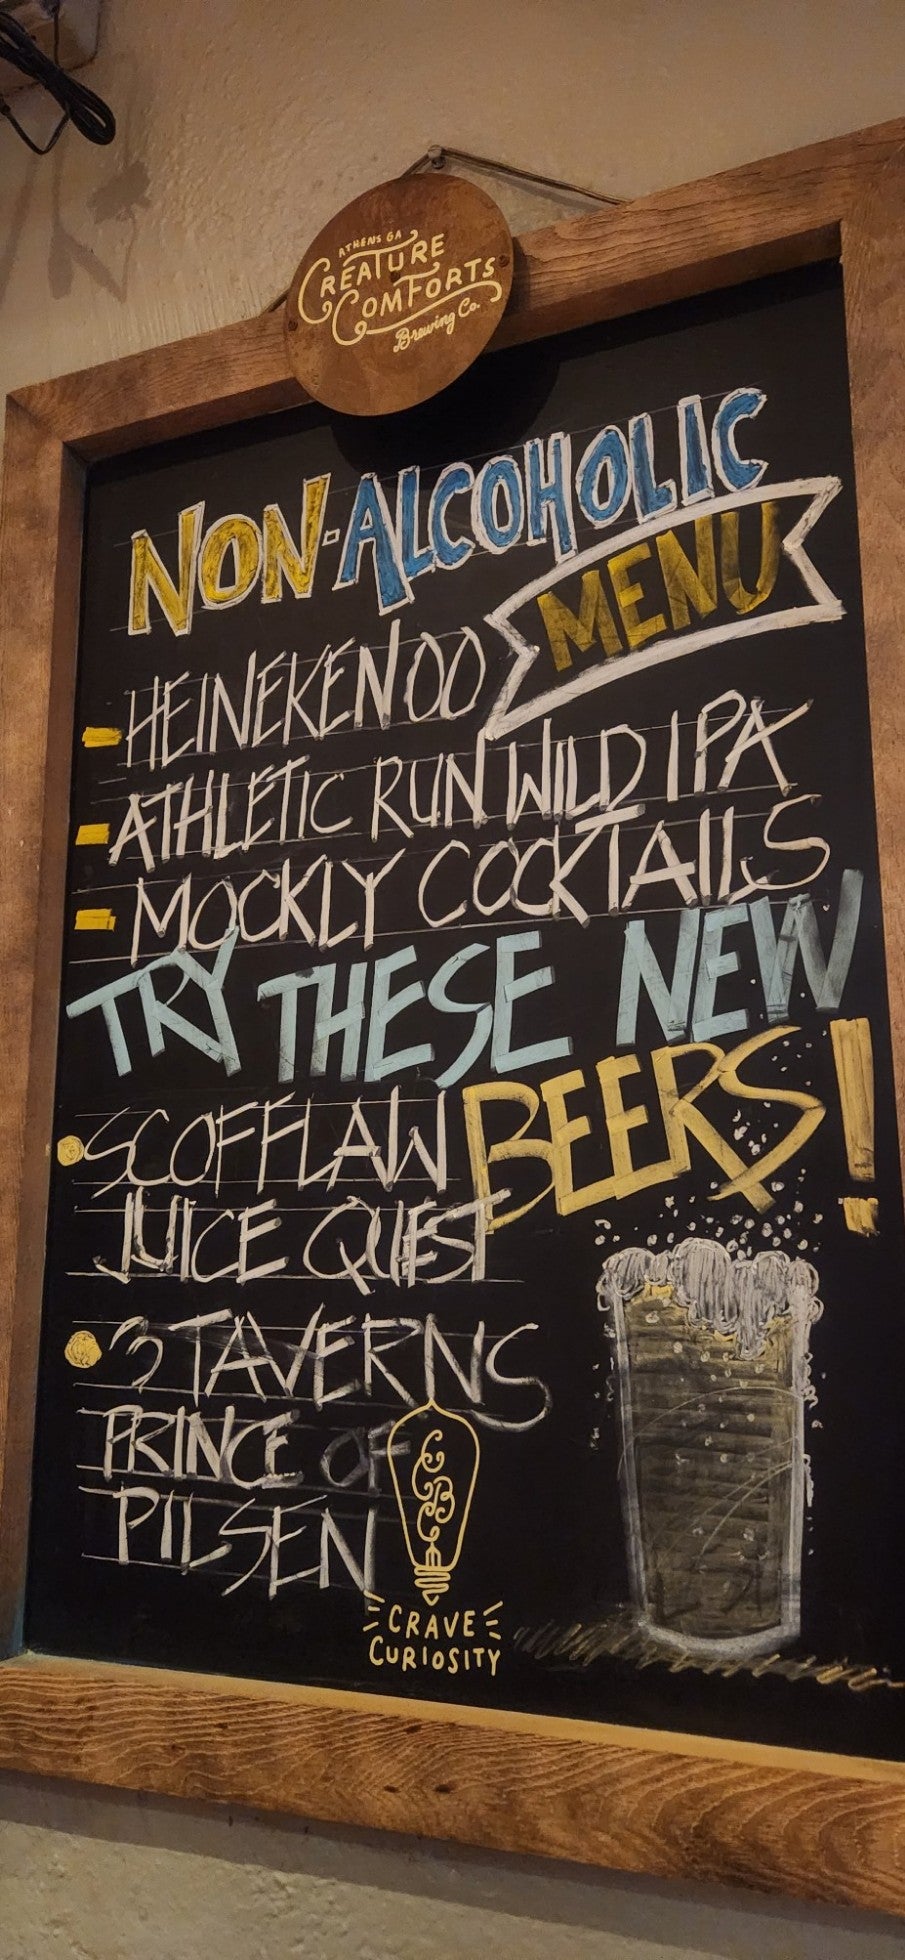 ATHENS GA
CREATURE
COMFORTS
Brewing Co.
NON-ALCOHOLIC
MENU
- HEINEKEN 00
- ATHLETIC RUN WILD IPA
- MOCKLY COCKTAILS
TRY THESE NEW
BEERS!
SCOFFLAW
JUICE QUEST
3 TAVERNS
PRINCE OF
PILSEN
CRAVE
CURIOSITY